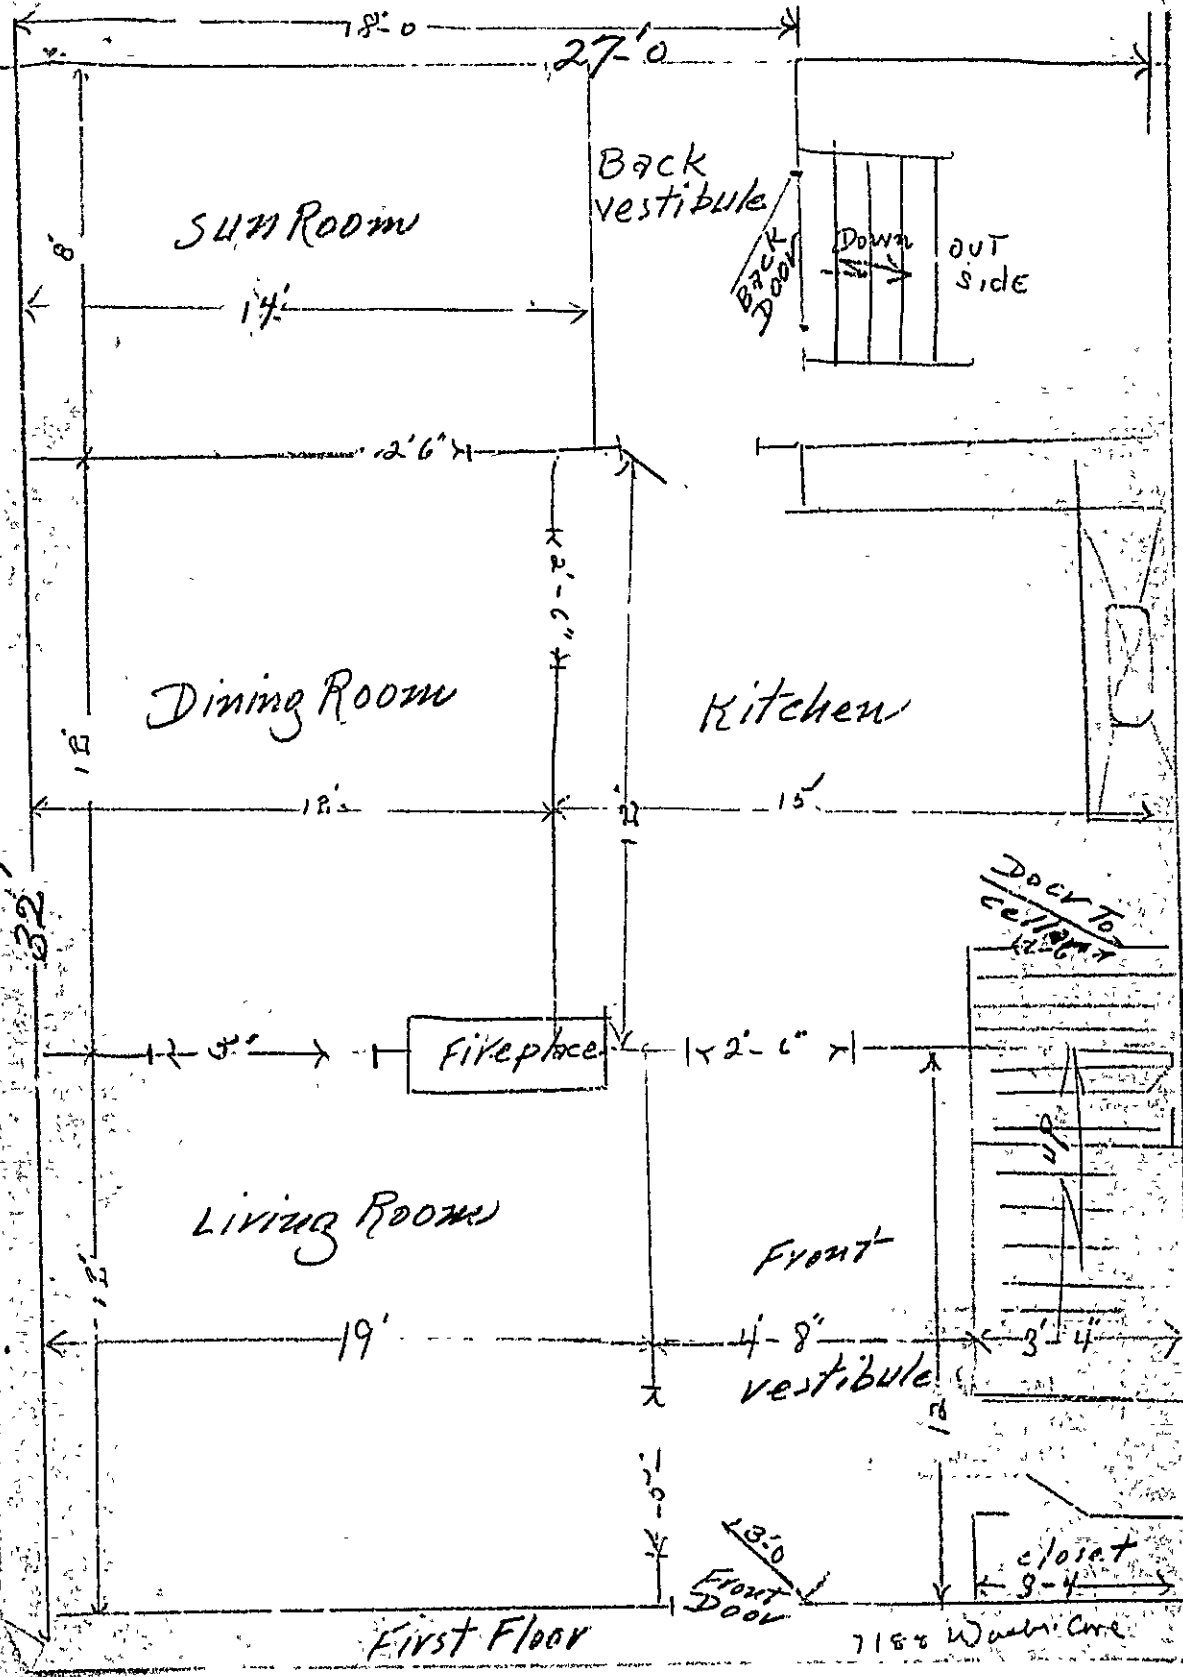 18'-0
27'-0
Back
vestibule
Sun Room
8'
Back
Door
Down
out
side
14'
2'6"
2'-6"
Dining Room
Kitchen
12'
12'
15'
12'
32'
Door To
cellar
2-6"
Fireplace
2'-6"
UP
Living Room
Front
12'
19'
4'-8"
3'-4"
vestibule
12'
3'-0
Front
Door
closet
3-4
First Floor